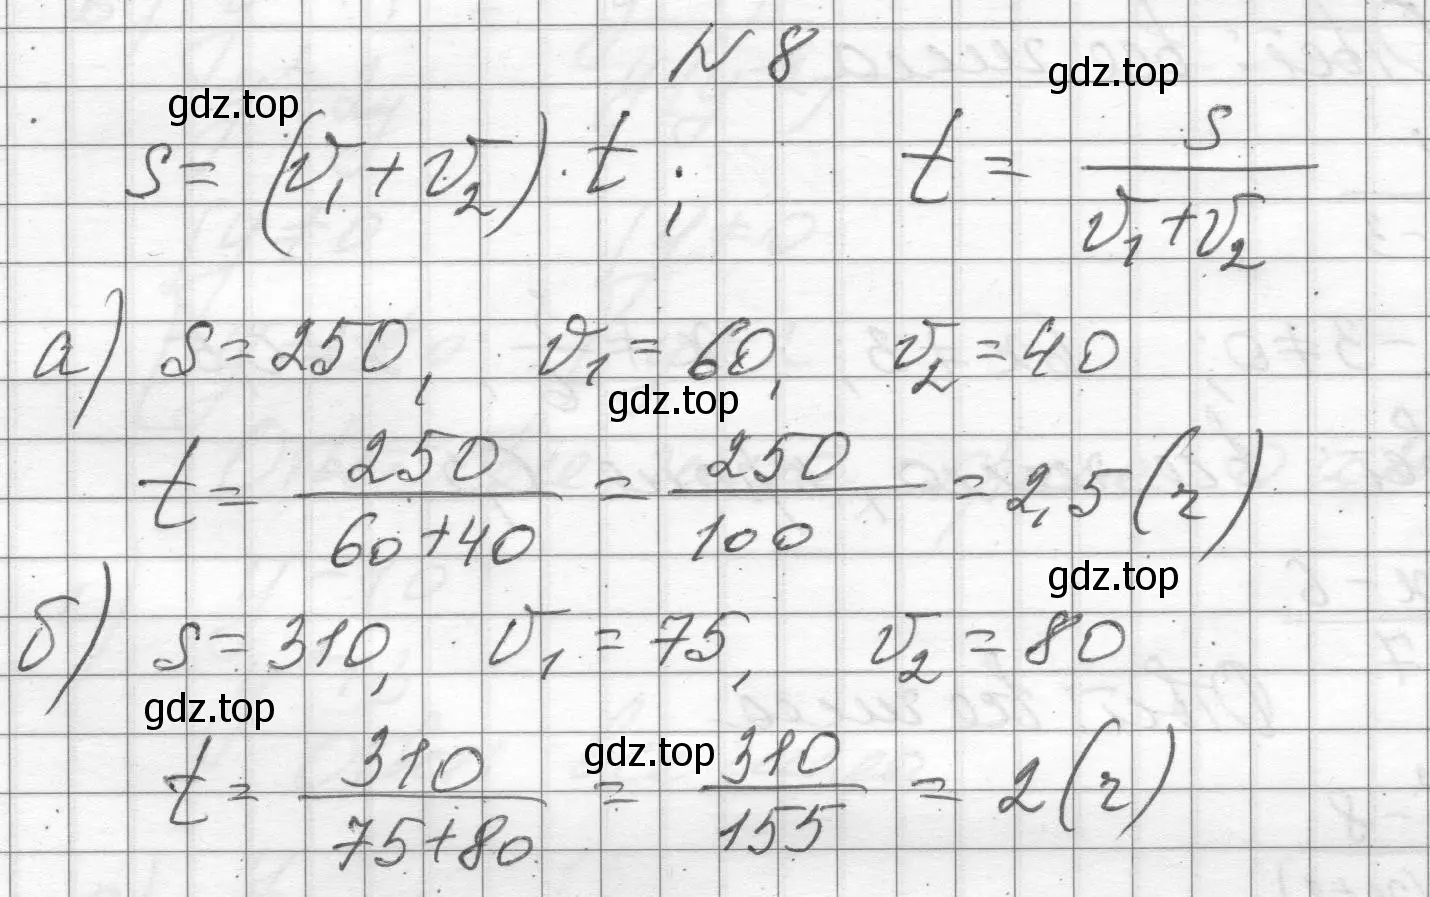 N 8
gdz.top
gdz.top
s = (v₁ + v₂) · t ; t = s / (v₁ + v₂)
а) s = 250, v₁ = 60, v₂ = 40
gdz.top
t = 250 / (60 + 40) = 250 / 100 = 2,5 (г)
gdz.top
б) s = 310, v₁ = 75, v₂ = 80
gdz.top
gdz.top
t = 310 / (75 + 80) = 310 / 155 = 2 (г)